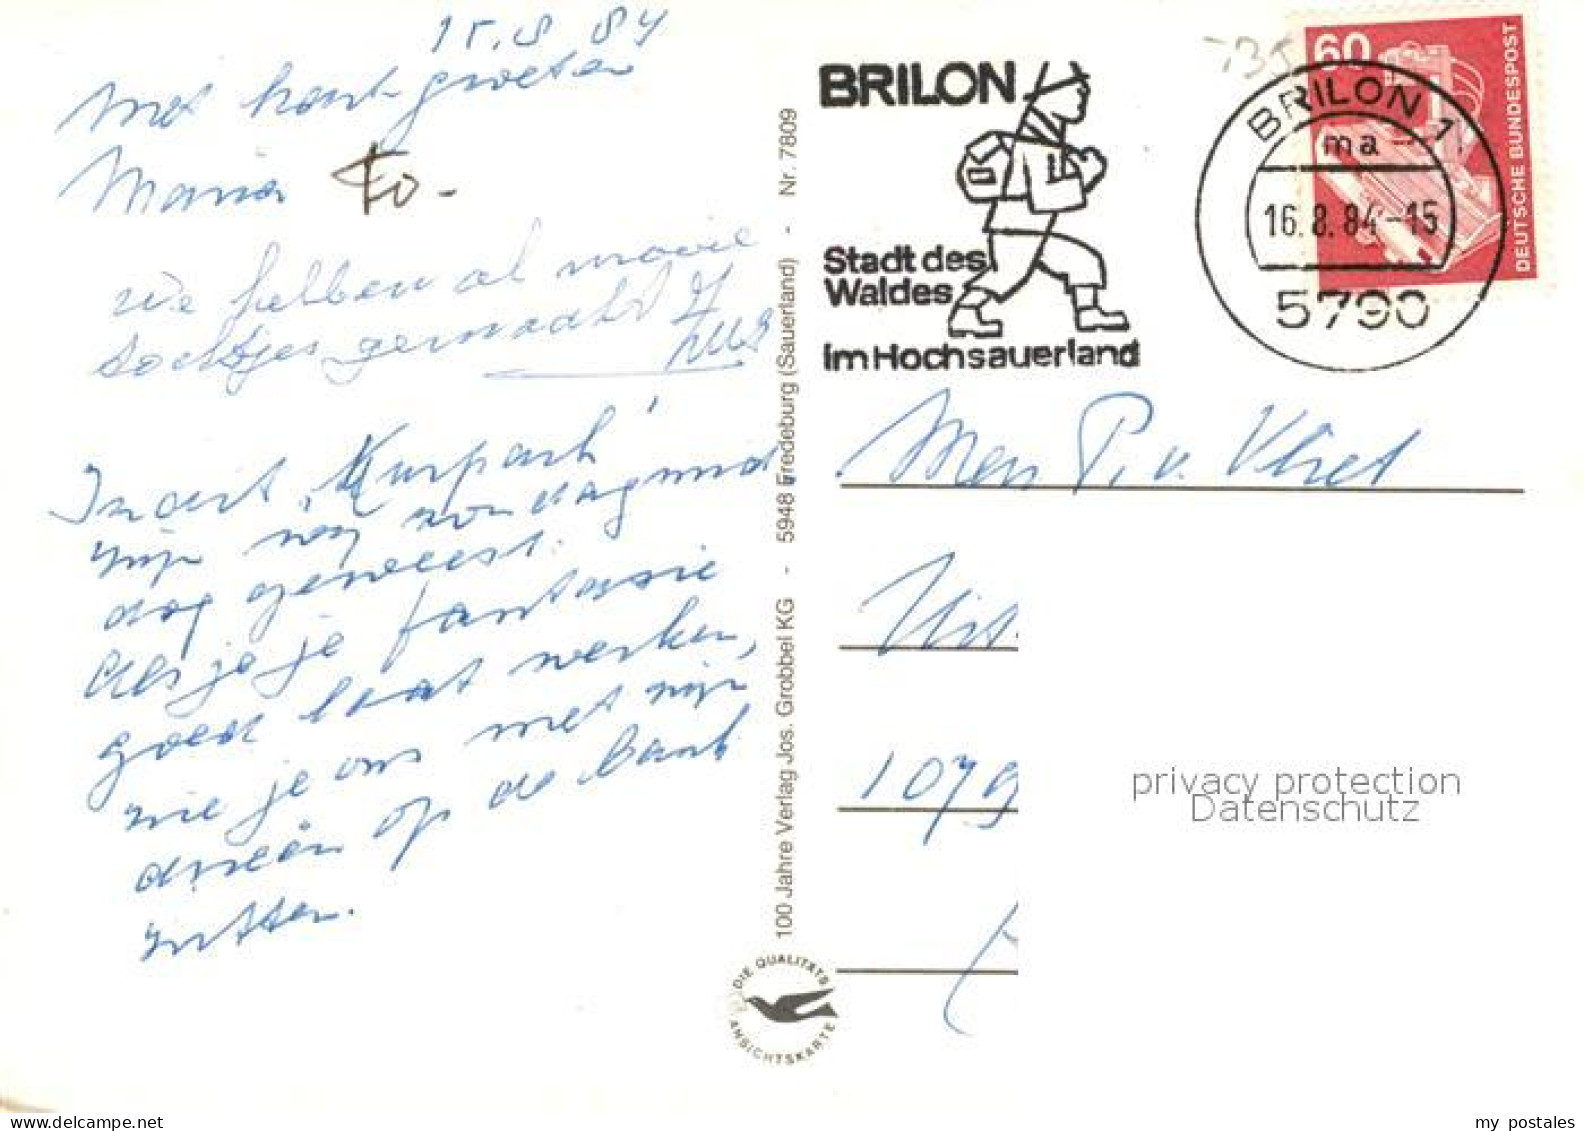 15.8 84
Met hart groeten
Maria Ko -
We hebben al mooie
tochtjes gemaakt
In dit "Kurpark"
zijn wij zondagmid
dag geweest.
Als je je fantasie
goed laat werken,
zie je ons met zijn
drieën op de bank
zitten.
100 Jahre Verlag Jos. Grobbel KG - 5948 Fredeburg (Sauerland) - Nr. 7809
DIE QUALITÄTS
ANSICHTSKARTE
BRILON
Stadt des
Waldes
im Hochsauerland
BRILON 1
ma
16.8.84-15
5790
60
DEUTSCHE BUNDESPOST
P. v. Vliet
1079
privacy protection
Datenschutz
www.delcampe.net
my postales